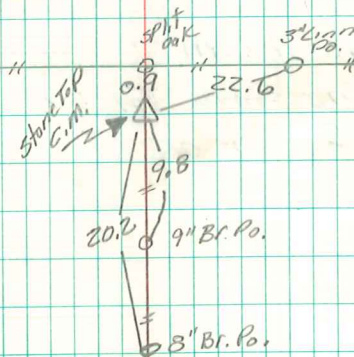 split
oak
3" Linn
Po.
0.9
22.6
Stone Top
C.M.
9.8
20.2
9" Br. Po.
8" Br. Po.